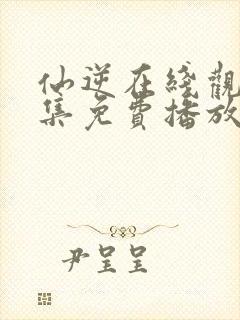 仙逆在綫觀
集免費播放
尹呈呈